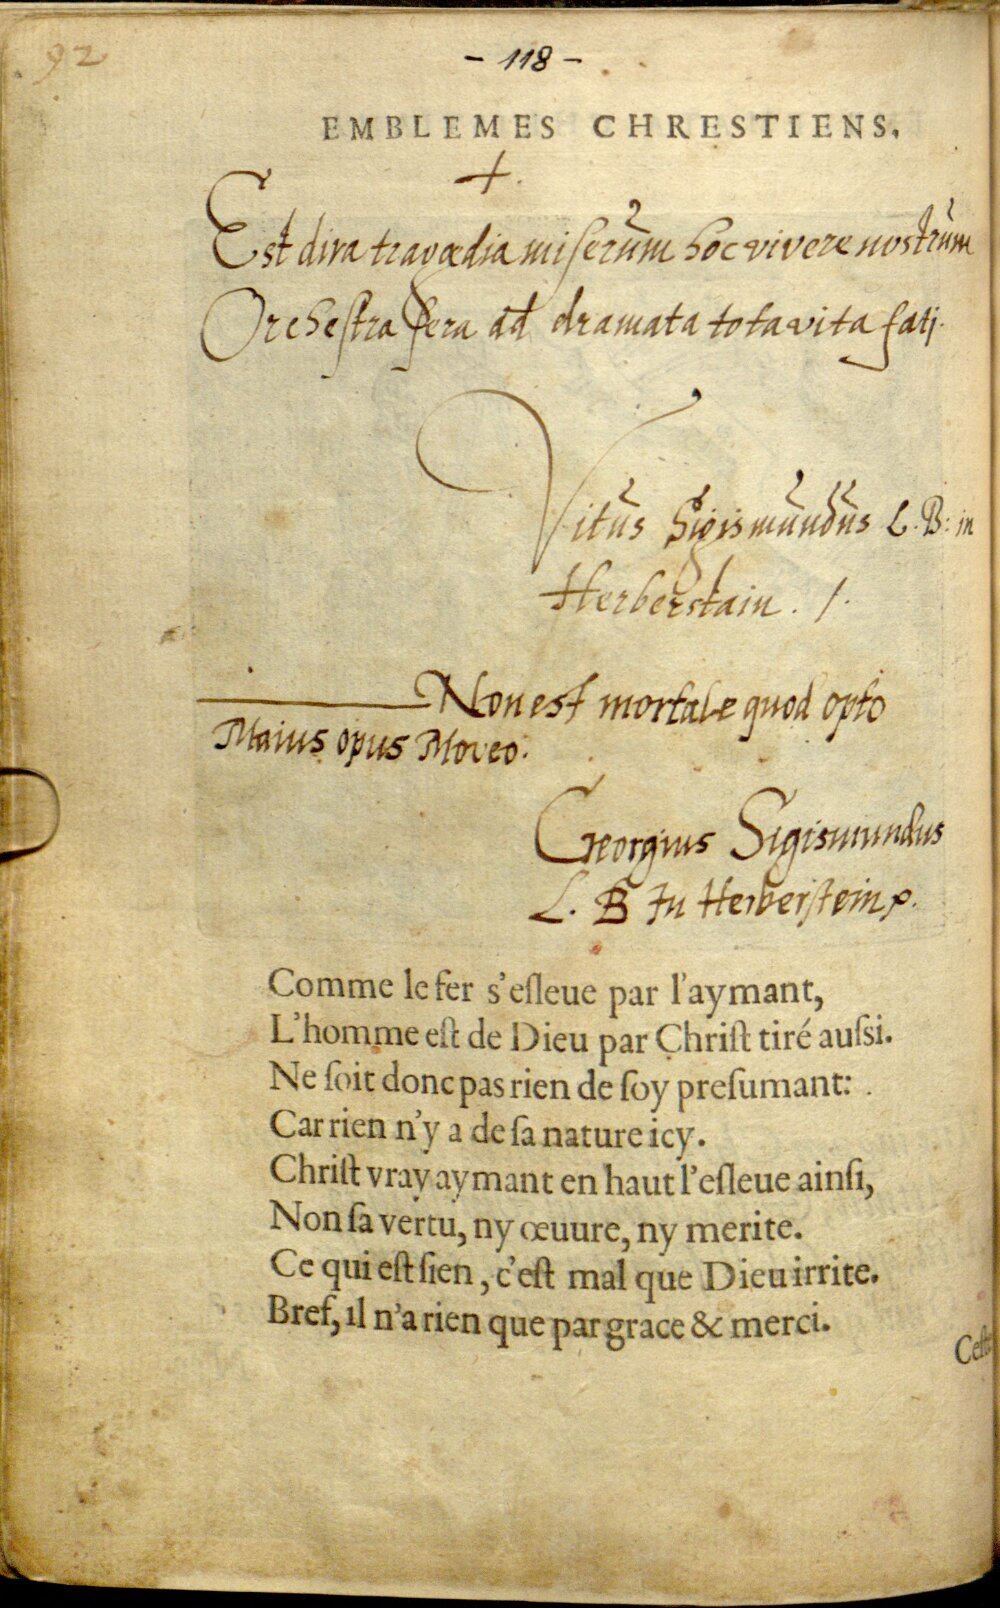 92
- 118 -
EMBLEMES CHRESTIENS.
Est dira tragœdia miserum hoc vivere nostrum
Orchestra fera ad dramata tota vita fatj.
Vitus Sigismundus L. B: in
Herberstain. /.
Non est mortale quod opto
Maius opus Moveo.
Georgius Sigismundus
L. B In Herberstein
Comme le fer s'eſleue par l'aymant,
L'homme eſt de Dieu par Chriſt tiré auſsi.
Ne ſoit donc pas rien de ſoy preſumant:
Car rien n'y a de ſa nature icy.
Chriſt vray aymant en haut l'eſleue ainſi,
Non ſa vertu, ny œuure, ny merite.
Ce qui eſt ſien, c'eſt mal que Dieu irrite.
Bref, il n'a rien que par grace & merci.